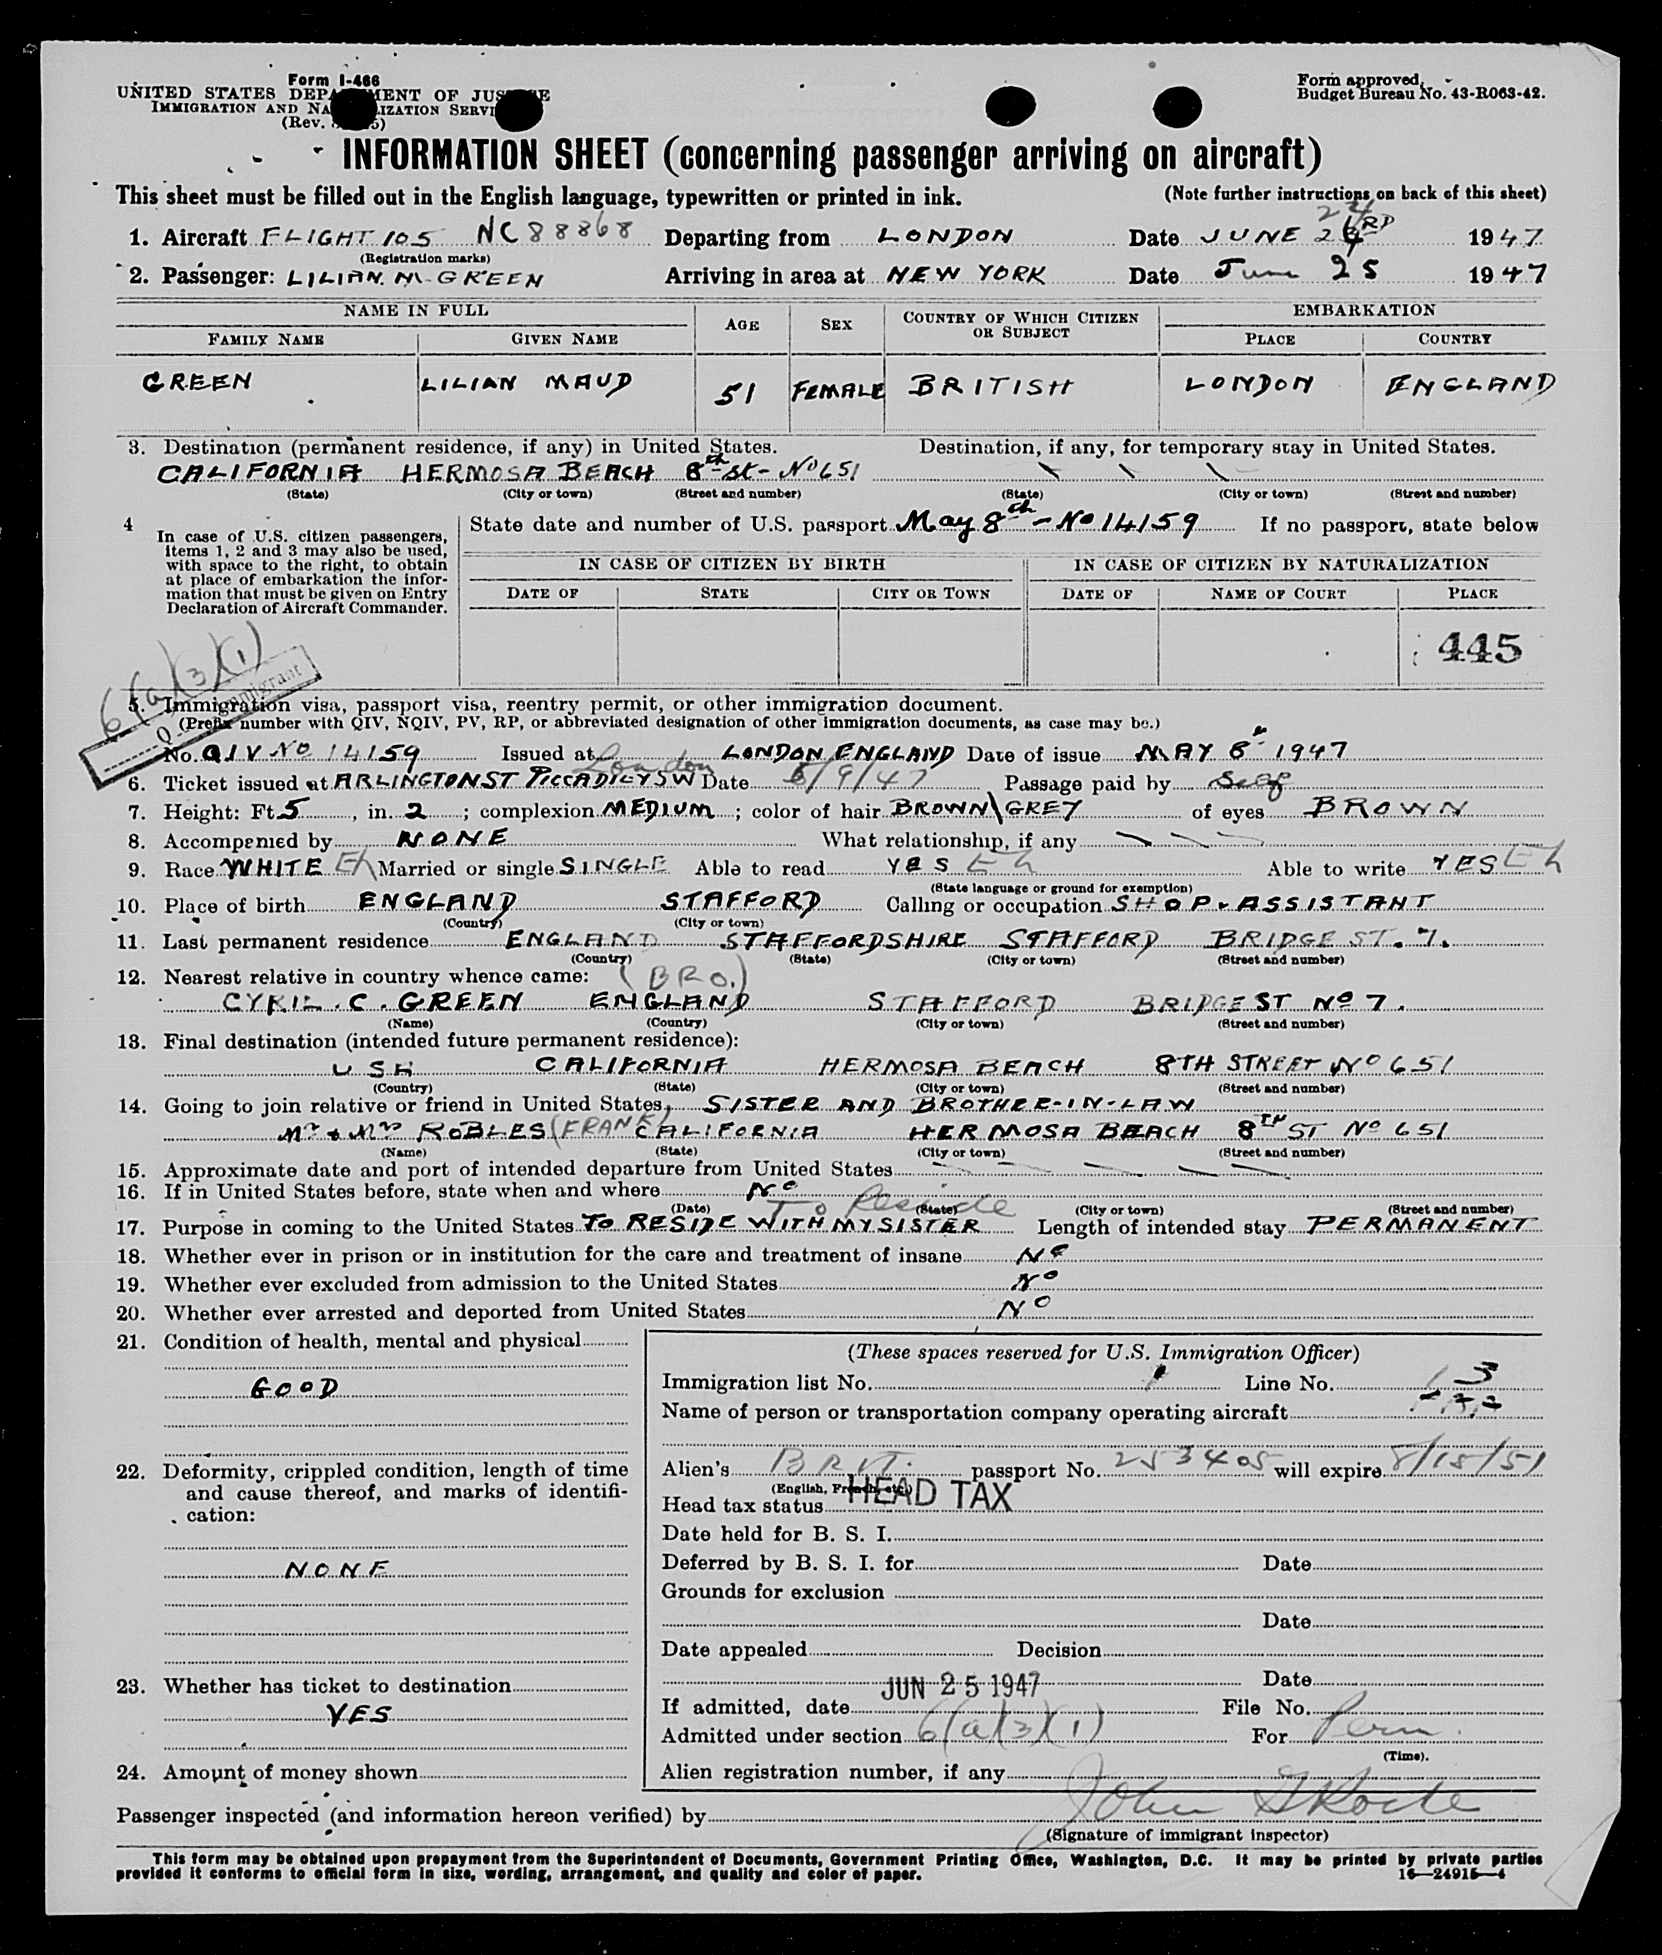 Form I-466
UNITED STATES DEPARTMENT OF JUSTICE
IMMIGRATION AND NATURALIZATION SERVICE
(Rev.
Form approved,
Budget Bureau No. 43-R063-42.
INFORMATION SHEET (concerning passenger arriving on aircraft)
This sheet must be filled out in the English language, typewritten or printed in ink. (Note further instructions on back of this sheet)
24
1. Aircraft FLIGHT 105 NC 88868 Departing from LONDON Date JUNE RD 1947
(Registration marks)
2. Passenger: LILIAN. M. GREEN Arriving in area at NEW YORK Date June 25 1947
NAME IN FULL AGE SEX COUNTRY OF WHICH CITIZEN OR SUBJECT EMBARKATION
FAMILY NAME GIVEN NAME PLACE COUNTRY
GREEN LILIAN MAUD 51 FEMALE BRITISH LONDON ENGLAND
3. Destination (permanent residence, if any) in United States. Destination, if any, for temporary stay in United States.
CALIFORNIA HERMOSA BEACH 8th St- No 651
(State) (City or town) (Street and number) (State) (City or town) (Street and number)
4 In case of U.S. citizen passengers, items 1, 2 and 3 may also be used, with space to the right, to obtain at place of embarkation the information that must be given on Entry Declaration of Aircraft Commander.
State date and number of U.S. passport May 8th - No 14159 If no passport, state below
IN CASE OF CITIZEN BY BIRTH IN CASE OF CITIZEN BY NATURALIZATION
DATE OF STATE CITY OR TOWN DATE OF NAME OF COURT PLACE
445
6(a)(3)(1)
Q - Immigrant
5. Immigration visa, passport visa, reentry permit, or other immigration document.
(Prefix number with QIV, NQIV, PV, RP, or abbreviated designation of other immigration documents, as case may be.)
No. QIV No 14159 Issued at LONDON ENGLAND Date of issue MAY 8th 1947
London
6. Ticket issued at ARLINGTON ST PICCADILY SW Date 5/9/47 Passage paid by Self
7. Height: Ft. 5, in. 2; complexion MEDIUM; color of hair BROWN\GREY of eyes BROWN
8. Accompenied by NONE What relationship, if any
9. Race WHITE Eh Married or single SINGLE Able to read YES Eh Able to write YES Eh
(State language or ground for exemption)
10. Place of birth ENGLAND STAFFORD Calling or occupation SHOP. ASSISTANT
(Country) (City or town)
11. Last permanent residence ENGLAND STAFFORDSHIRE STAFFORD BRIDGE ST. 7.
(Country) (State) (City or town) (Street and number)
12. Nearest relative in country whence came: (BRO.)
CYRIL. C. GREEN ENGLAND STAFFORD BRIDGE ST No 7.
(Name) (Country) (City or town) (Street and number)
13. Final destination (intended future permanent residence):
USA CALIFORNIA HERMOSA BEACH 8TH STREET No 651
(Country) (State) (City or town) (Street and number)
14. Going to join relative or friend in United States, SISTER AND BROTHER-IN-LAW
Mr & Mrs ROBLES (FRANK) CALIFORNIA HERMOSA BEACH 8TH ST No 651
(Name) (State) (City or town) (Street and number)
15. Approximate date and port of intended departure from United States
16. If in United States before, state when and where No
(Date) (State) (City or town) (Street and number)
To Reside
17. Purpose in coming to the United States TO RESIDE WITH MY SISTER Length of intended stay PERMANENT
18. Whether ever in prison or in institution for the care and treatment of insane No
19. Whether ever excluded from admission to the United States No
20. Whether ever arrested and deported from United States No
21. Condition of health, mental and physical
GOOD
22. Deformity, crippled condition, length of time and cause thereof, and marks of identification:
NONE
23. Whether has ticket to destination
YES
24. Amount of money shown
(These spaces reserved for U.S. Immigration Officer)
Immigration list No. 1 Line No. 3
Name of person or transportation company operating aircraft
Alien's BRIT. passport No. 253405 will expire 8/15/51
(English, French, etc.)
Head tax status HEAD TAX
Date held for B. S. I.
Deferred by B. S. I. for Date
Grounds for exclusion
Date
Date appealed Decision
JUN 25 1947 Date
If admitted, date File No.
Admitted under section 6(a)(3)(1) For Perm.
(Time).
Alien registration number, if any
Passenger inspected (and information hereon verified) by John
(Signature of immigrant inspector)
This form may be obtained upon prepayment from the Superintendent of Documents, Government Printing Office, Washington, D.C. It may be printed by private parties
provided it conforms to official form in size, wording, arrangement, and quality and color of paper. 16—24915—4